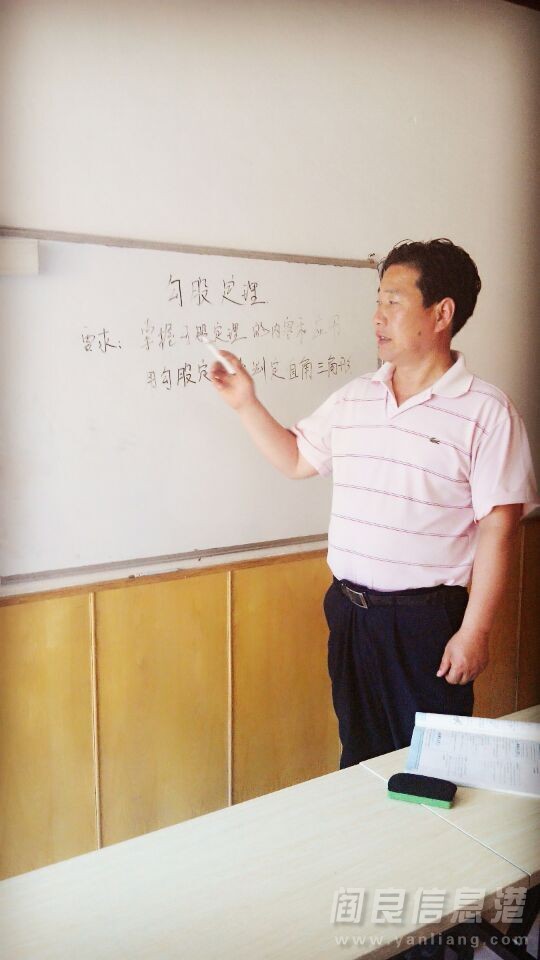 勾股定理
要求: 掌握 股定理的内容和应用
用勾股定 判定直角三角形
阎良信息港
www.yanliang.com